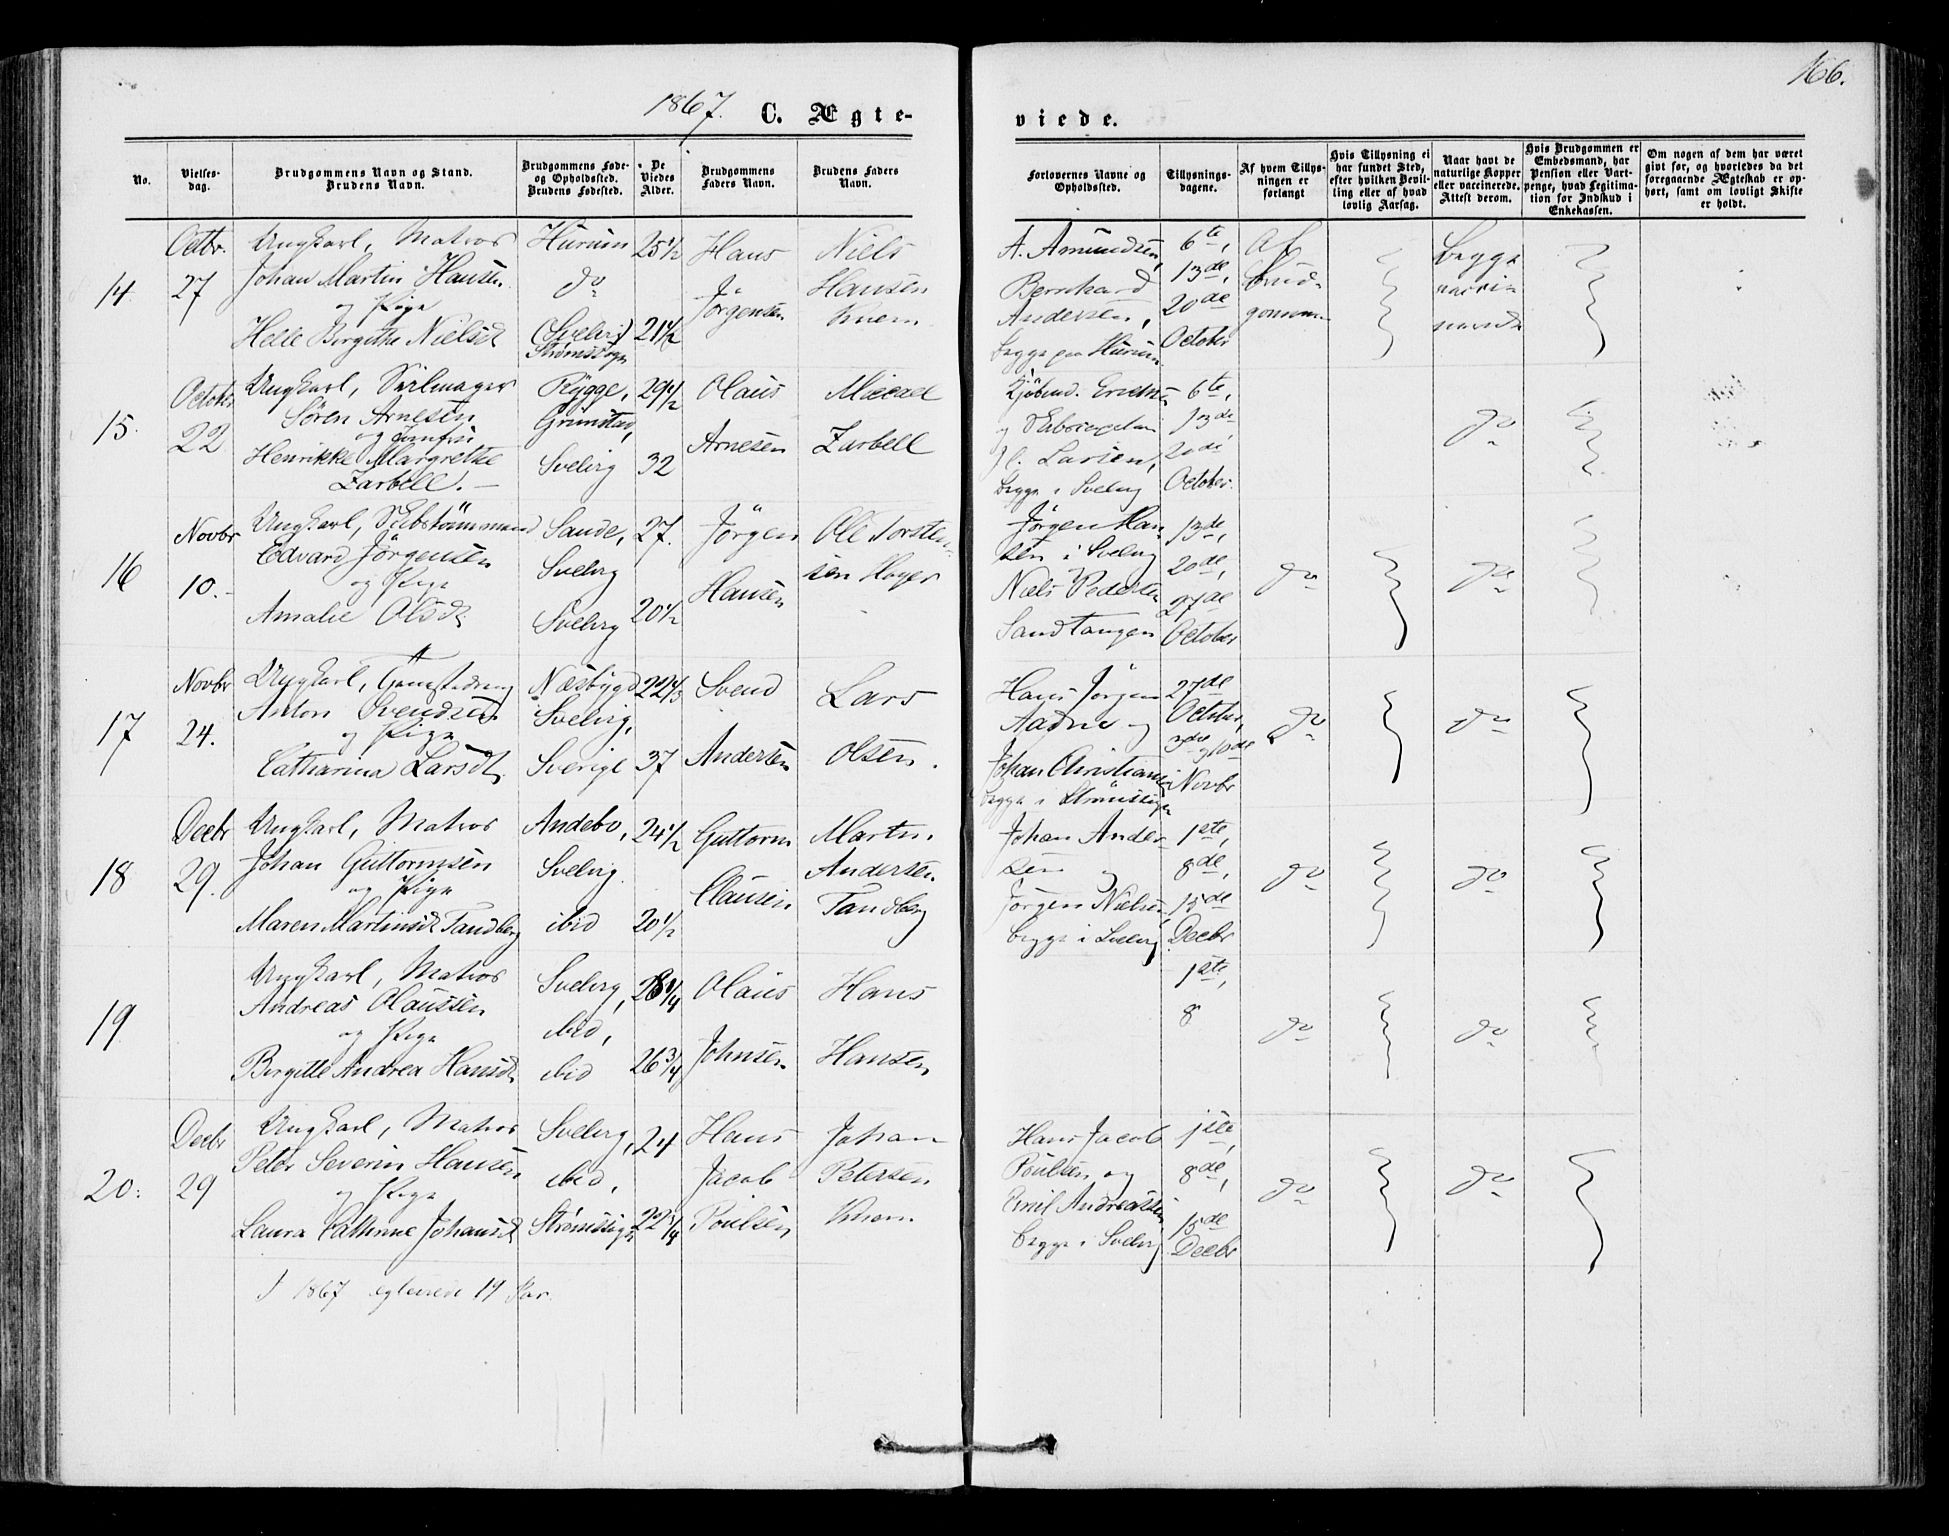 1867. C. Ægte-
viede.
166.
No.
Vielses-
dag.
Brudgommens Navn og Stand.
Brudens Navn.
Brudgommens Føde-
og Opholdssted.
Brudens Fødested.
De
Viedes
Alder.
Brudgommens
Faders Navn.
Brudens Faders
Navn.
Forlovernes Navne og
Opholdssted.
Tillysnings-
dagene.
Af hvem Tillys-
ningen er
forlangt
Hvis Tillysning ei
har fundet Sted,
efter hvilken Bevil-
ling eller af hvad
lovlig Aarsag.
Naar havt de
naturlige Kopper
eller vaccinerede.
Attest derom.
Hvis Brudgommen er
Embedsmand, har
Pension eller Vart-
penge, hvad Legitima-
tion for Indskud i
Enkekassen.
Om nogen af dem har været
givt før, og hvorledes da det
foregaaende Ægteskab er op-
hørt, samt om lovligt Skifte
er holdt.
14
Octbr.
27
Ungkarl, Matros
Johan Martin Hansen
og Pige
Helle Birgitte Nielsd
Hurum
do
(Svelvig)
Strømsbogn
25 1/2
21 1/2
Hans
Jörgensen
Niels
Hansen
Knem
A. Amundsen,
Bernhard
Andersen,
begge paa Hurum
6te,
13de,
20de
October
Af
brud-
gommen
begge
vacci-
nerede
15.
October
22
Ungkarl, Seilmager
Sören Arnesen
og Jomfru
Henrikke Margrethe
Zarbell.
Rygge,
Grimstad,
Svelvig
29 1/2
32
Olaus
Arnesen
Micael
Zarbell
Kjöbmd. Ericksen
og
H. Larsen,
begge i Svelvig
6te,
13de,
20de
October.
do
16
Novbr
10.
Ungkarl, Skibstömmermand
Edvard Jörgensen
og Pige
Amalie Olsdt.
Sande,
Svelvig
Svelvig
27.
20 1/2
Jörgen
Hansen
Ole Torsten-
sen Hoyer
Jörgen Han-
sen i Svelvig
Niels Pedersen
Sandtangen
13de,
20de,
27de
October
do
do
17
Novbr
24.
Ungkarl, Tjenestedreng
Anton Svendsen
og Pige
Catharina Larsdt.
Næsbygd
Svelvig,
Sverige
22 1/3
37
Svend
Andersen
Lars
Olsen.
Hans Jörgen
Aadne og
Johan Christiansen
begge i Strömsbogn
27de
October,
3die og 10de
Novbr
do
do
18
Decbr
29.
Ungkarl, Matros
Johan Guttormsen
og Pige
Maren Martinsdt Tandberg
Andebo,
Svelvig
ibid
24 1/2
20 1/2
Guttorm
Clausen
Martin
Andersen
Tandberg
Johan Ander-
sen og
Jörgen Nielsen
begge i Svelvig
1ste,
8de,
15de
Decbr
do
do
19.
Ungkarl, Matros
Andreas Olaussen
og Pige
Birgitte Andrea Hansdt.
Svelvig,
ibid,
ibid
28 1/4
26 3/4
Olaus
Johnsen
Hans
Hansen
1ste,
8
do
do
20.
Decbr
29
Ungkarl, Matros
Peter Severin Hansen
og Pige
Laura Cathrine Johansdt
Svelvig,
ibid,
Strömsbogn
24
22 1/4
Hans
Jacob
Poulsen
Johan
Petersen
Knem
Hans Jacob
Poulsen og
Emil Andreassen
begge i Svelvig
1ste,
8de,
15de
Decbr
do
do
I 1867 egteviede 19 Par.